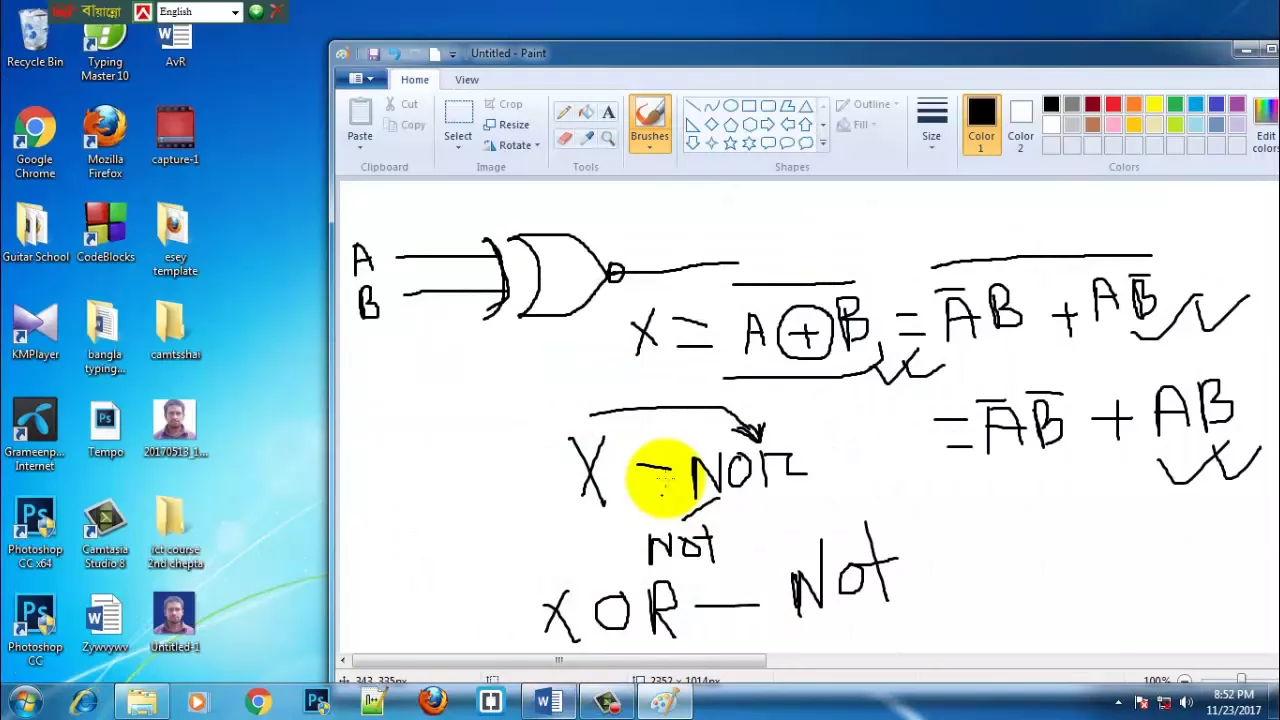 বায়ান্নো English
Untitled - Paint
Home View
Paste Cut Copy Clipboard
Select Crop Resize Rotate Image
Tools
Brushes
Shapes
Outline Fill
Size
Color 1 Color 2 Edit colors Colors
Recycle Bin
Typing Master 10
AvR
Google Chrome
Mozilla Firefox
capture-1
Guitar School
CodeBlocks
esey template
KMPlayer
bangla typing...
camtsshai
Grameenp... Internet
Tempo
20170513_1...
Photoshop CC x64
Camtasia Studio 8
ict course 2nd chepta
Photoshop CC
Zywvywv
Untitled-1
A
B
X = A ⊕ B = A̅B + AB̅
= A̅B̅ + AB
X - NOR
Not
XOR — Not
343, 335px 2352 × 1014px 100%
8:52 PM
11/23/2017